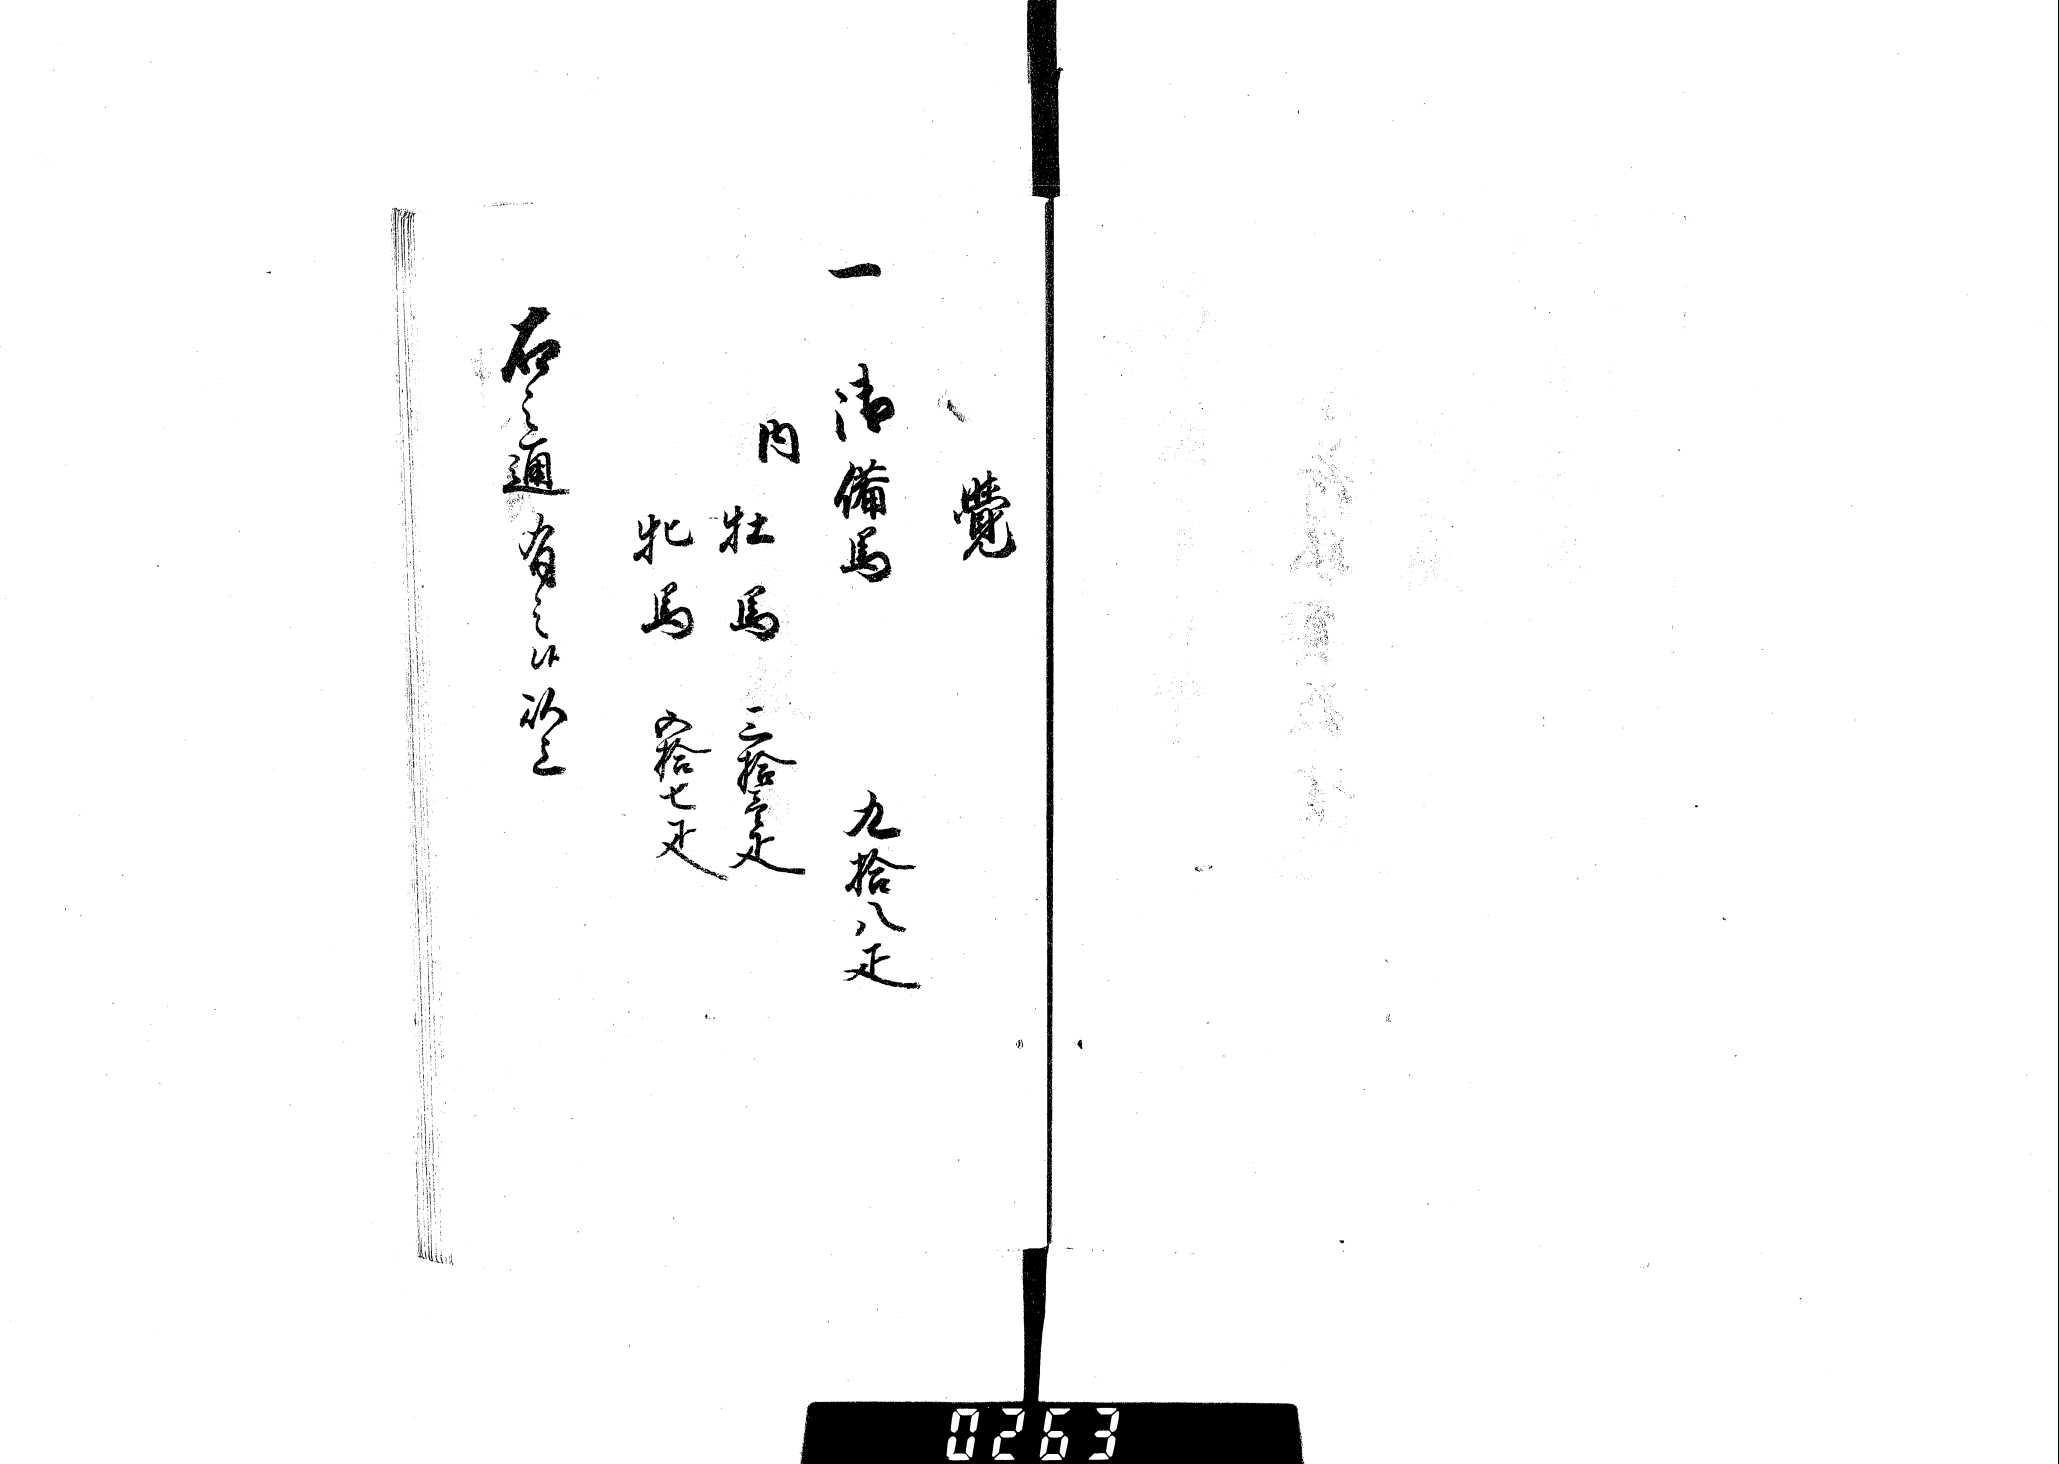 覺
一 御備馬 九拾八疋
内 牡馬 三拾壱疋
牝馬 六拾七疋
右之通有之候以上
0263